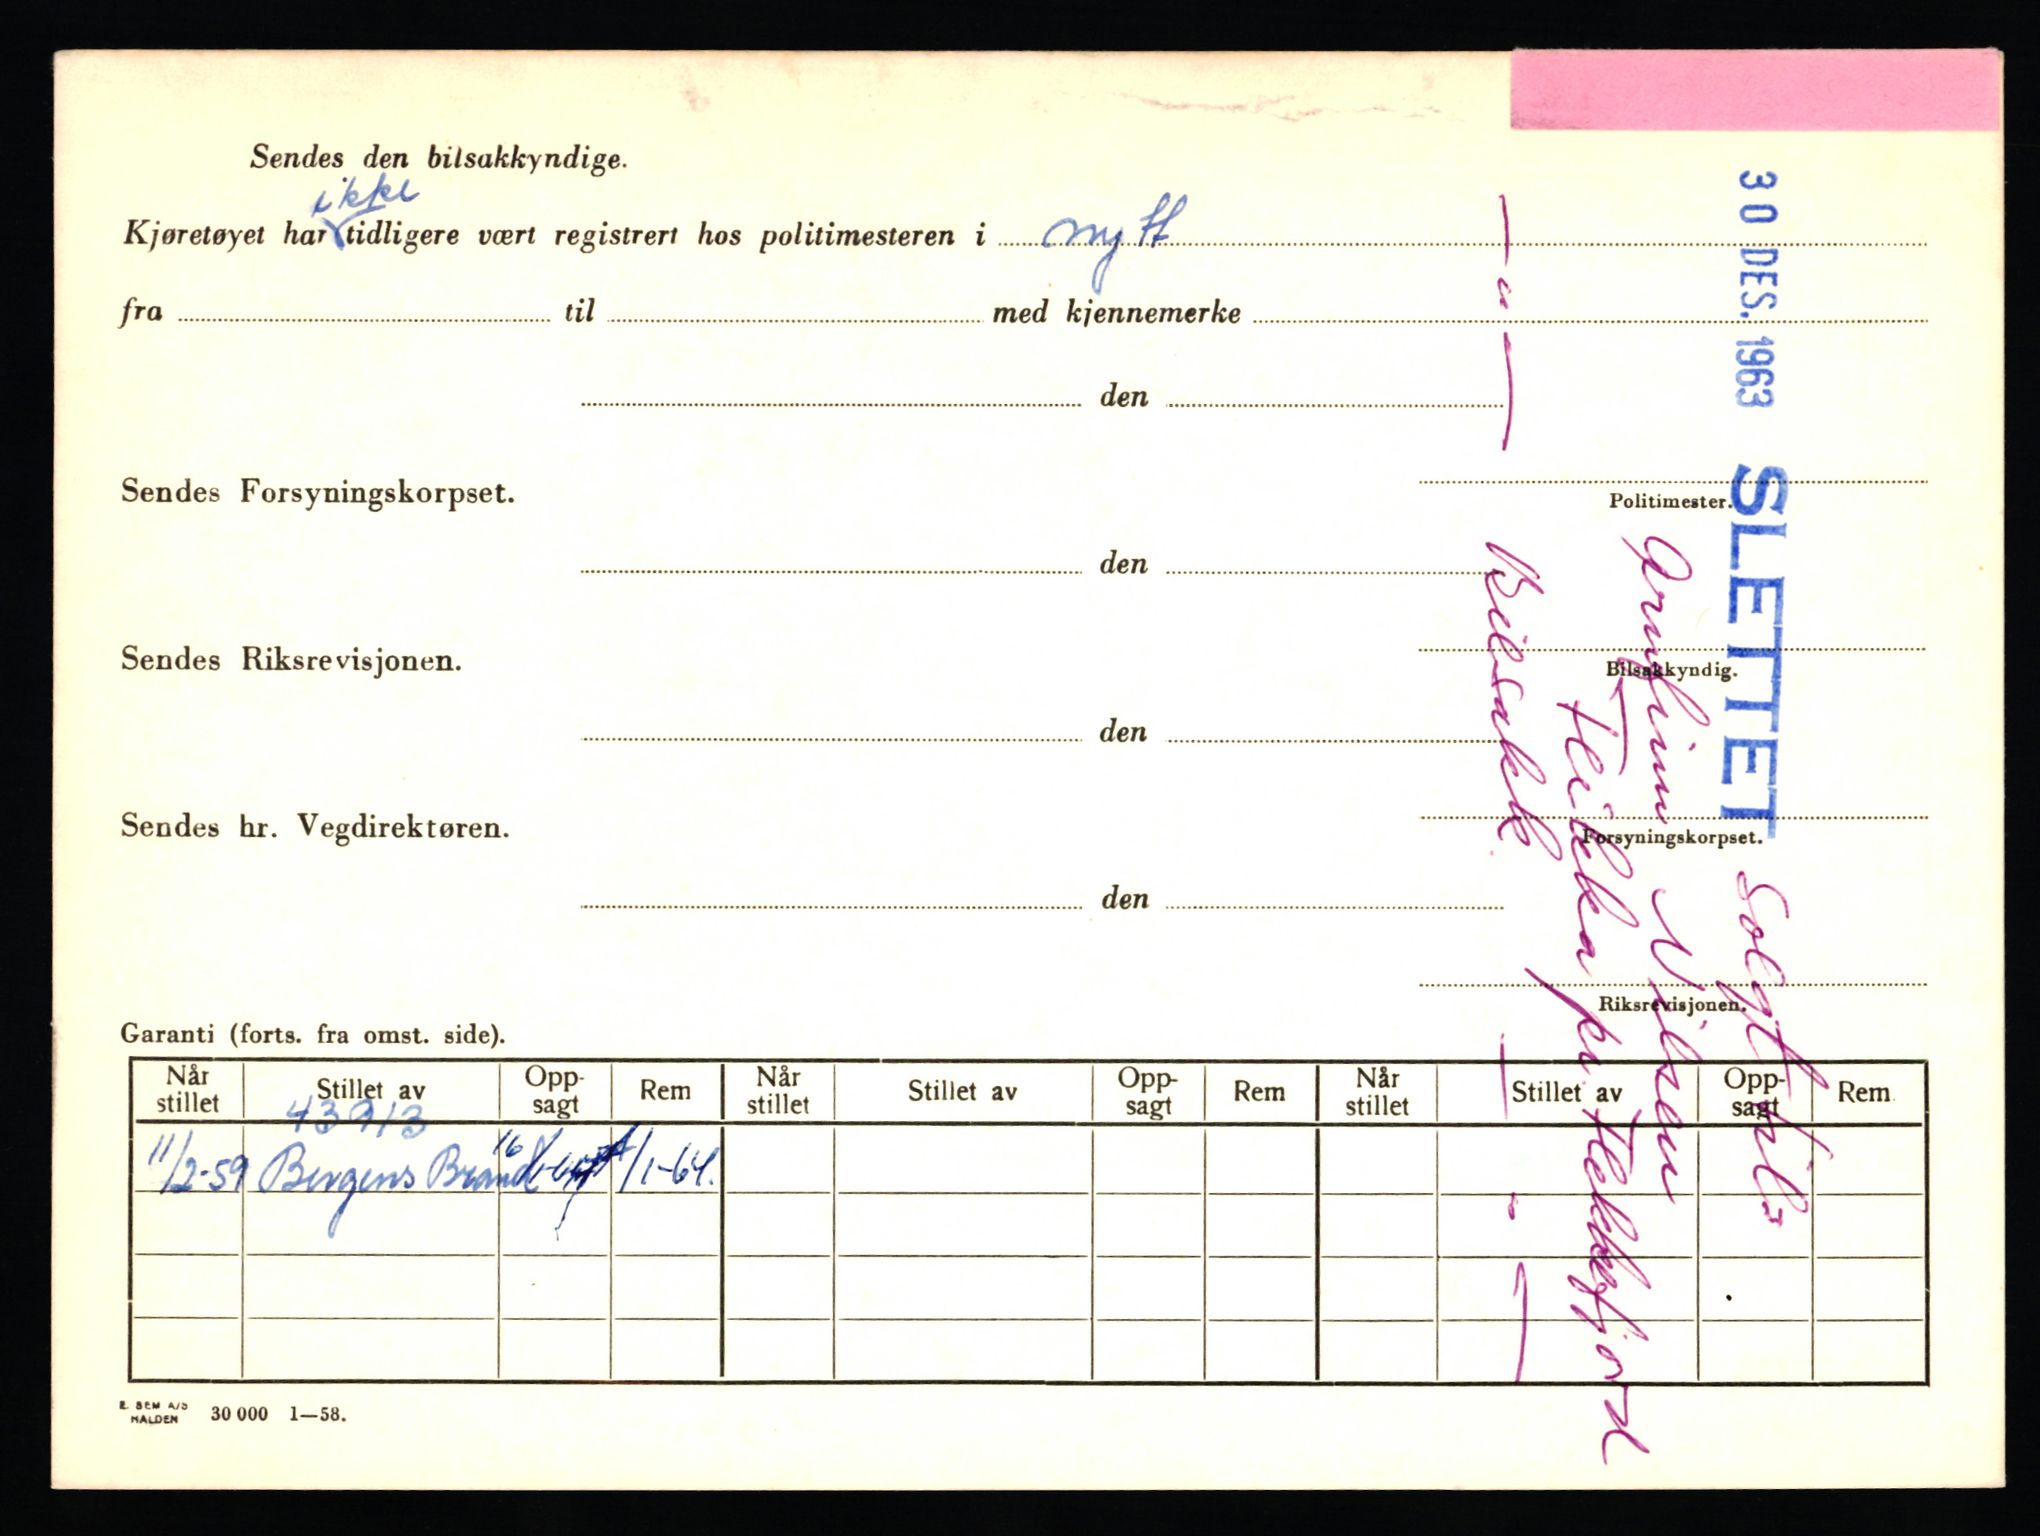 Sendes den bilsakkyndige.
ikke
Kjøretøyet har tidligere vært registrert hos politimesteren i nytt
fra til med kjennemerke
den
Politimester.
Sendes Forsyningskorpset.
den
Bilsakkyndig.
Sendes Riksrevisjonen.
den
Forsyningskorpset.
Sendes hr. Vegdirektøren.
den
Riksrevisjonen.
30 DES. 1963 SLETTET Solgt til
Arnfinn Nilsen
Fleikka pr. Flekkefjord
Bilsakk.
Garanti (forts. fra omst. side).
Når stillet Stillet av Opp-sagt Rem Når stillet Stillet av Opp-sagt Rem Når stillet Stillet av Opp-sagt Rem
43913
11/2-59 Bergens Brand 16 /1-64.
E. SEM A/S
HALDEN 30 000 1—58.